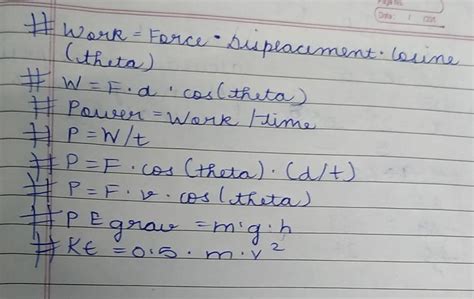 Page No.
Date: / /
# Work = Force · Displacement · Cosine
(theta)
# W = F · d · cos(theta)
# Power = Work / time
# P = W/t
# P = F · cos(theta) · (d/t)
# P = F · v · cos(theta)
# P E grav = m · g · h
# KE = 0.5 · m · v²